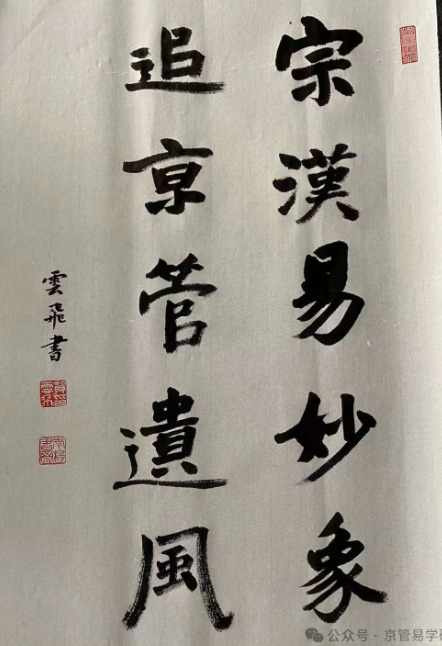 宗漢易妙象
追京管遺風
雲飛書
公众号·京管易学研